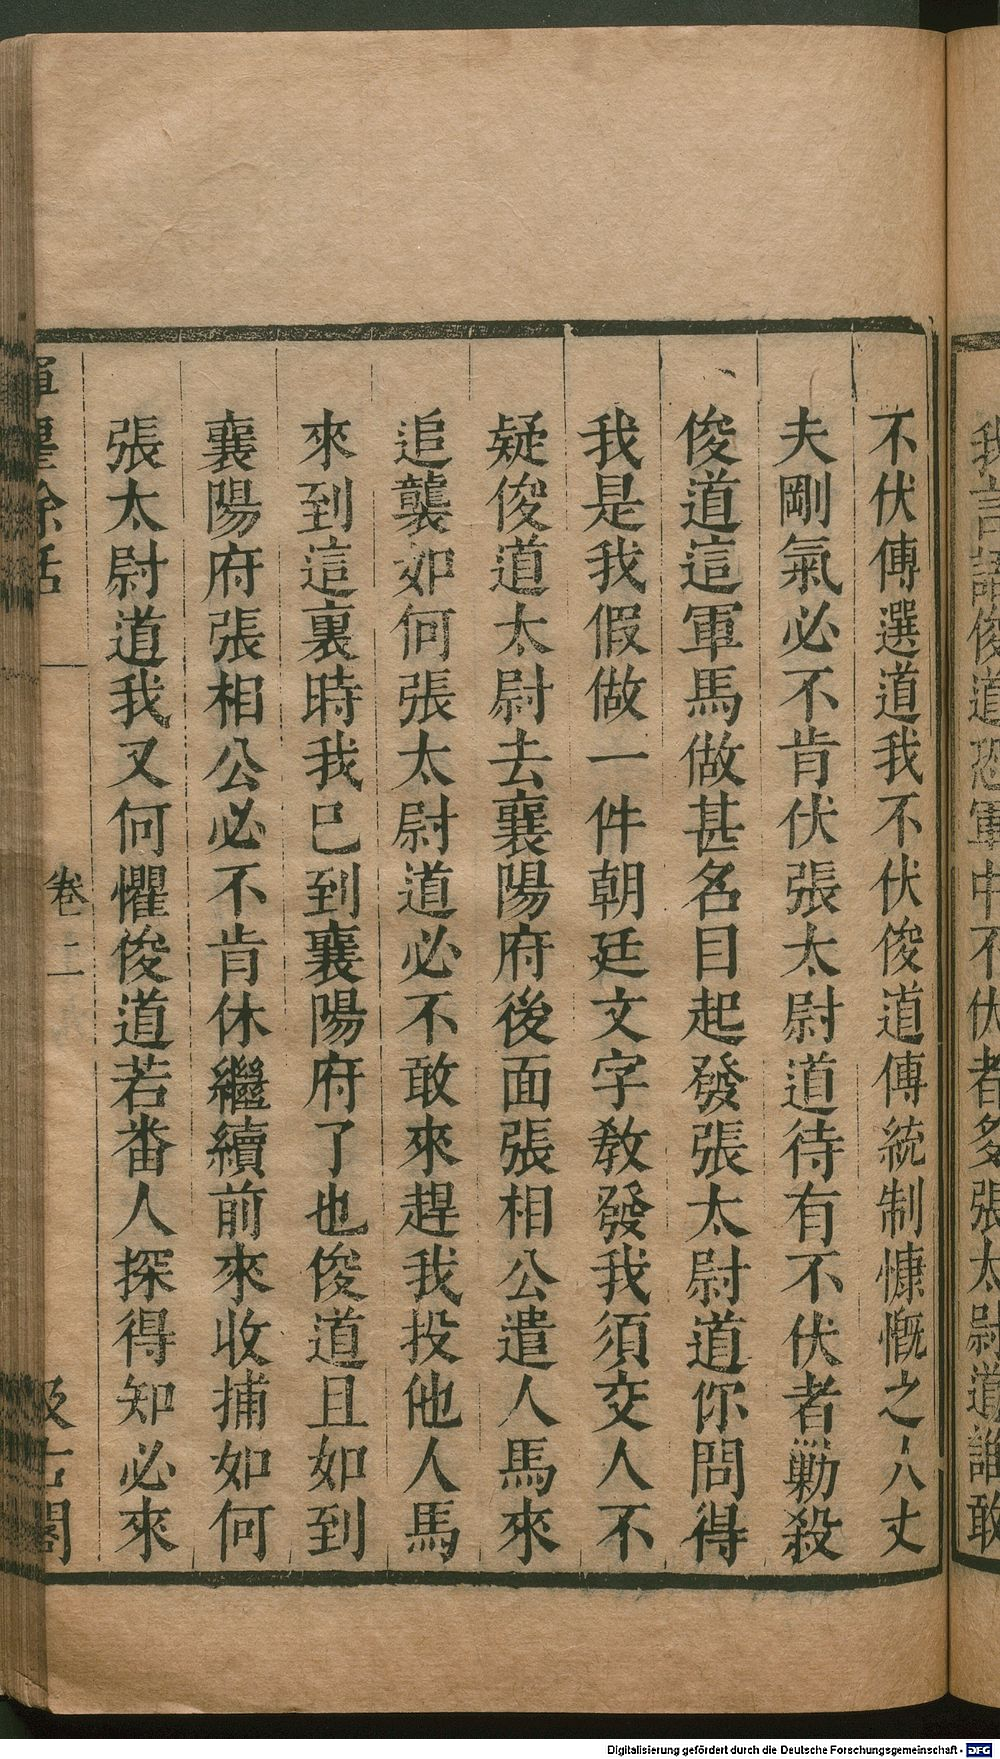 我言語俊道恐軍中不伏者多張太尉道誰敢
不伏傅選道我不伏俊道傅統制慷慨之人丈
夫剛氣必不肯伏張太尉道待有不伏者勦殺
俊道這軍馬做甚名目起發張太尉道你問得
我是我假做一件朝廷文字教發我須交人不
疑俊道太尉去襄陽府後面張相公遣人馬來
追襲如何張太尉道必不敢來趕我投他人馬
來到這裏時我已到襄陽府了也俊道且如到
襄陽府張相公必不肯休繼續前來收捕如何
張太尉道我又何懼俊道若番人探得知必來
揮麈餘話
卷二
汲古閣
Digitalisierung gefördert durch die Deutsche Forschungsgemeinschaft - DFG